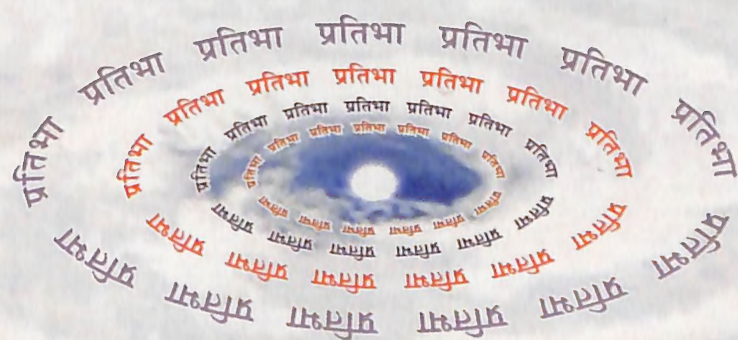 प्रतिभा प्रतिभा प्रतिभा प्रतिभा प्रतिभा प्रतिभा प्रतिभा प्रतिभा प्रतिभा प्रतिभा प्रतिभा प्रतिभा प्रतिभा
प्रतिभा प्रतिभा प्रतिभा प्रतिभा प्रतिभा प्रतिभा प्रतिभा प्रतिभा प्रतिभा प्रतिभा प्रतिभा प्रतिभा प्रतिभा
प्रतिभा प्रतिभा प्रतिभा प्रतिभा प्रतिभा प्रतिभा प्रतिभा प्रतिभा प्रतिभा प्रतिभा प्रतिभा प्रतिभा प्रतिभा
प्रतिभा प्रतिभा प्रतिभा प्रतिभा प्रतिभा प्रतिभा प्रतिभा प्रतिभा प्रतिभा प्रतिभा प्रतिभा प्रतिभा प्रतिभा